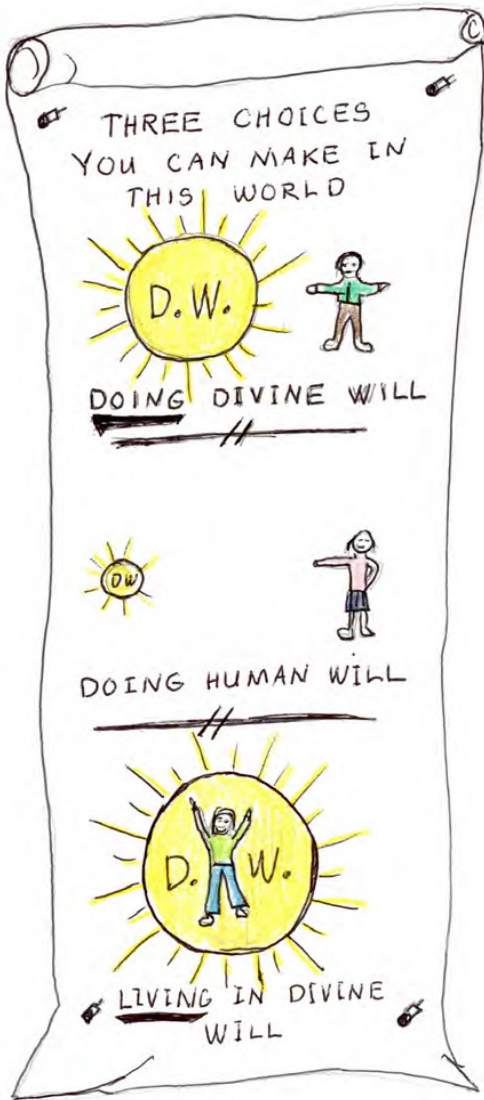 C
THREE CHOICES
YOU CAN MAKE IN
THIS WORLD
D.W.
DOING DIVINE WILL
DW
DOING HUMAN WILL
D. W.
LIVING IN DIVINE
WILL